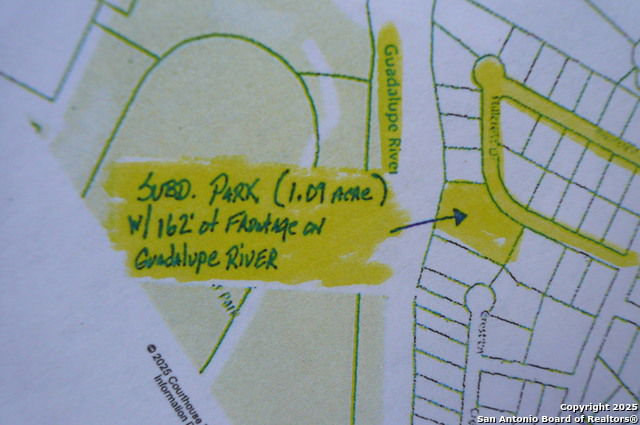 Guadalupe River
SUBD. PARK (1.09 ACRE)
W/ 162' of FRONTAGE ON
GUADALUPE RIVER
Park
Crest Ln
© 2025 Courthouse
Information
Copyright 2025
San Antonio Board of Realtors®